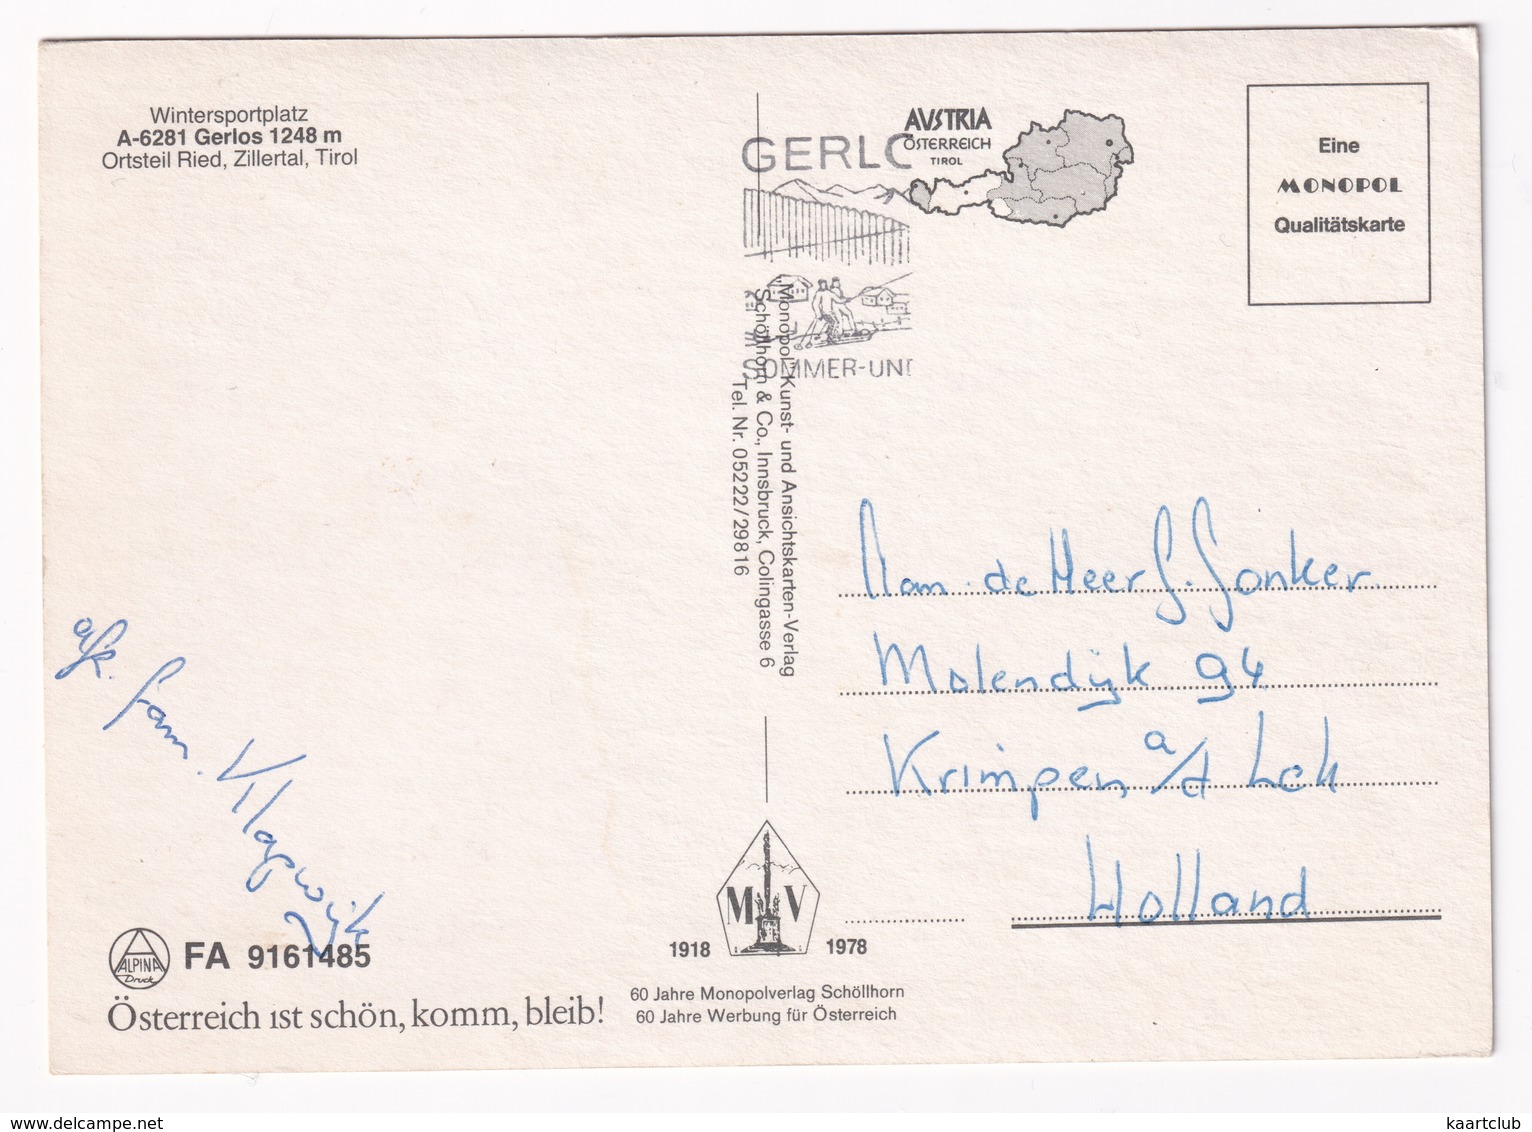 Wintersportplatz
A-6281 Gerlos 1248 m
Ortsteil Ried, Zillertal, Tirol
GERLO
AVSTRIA
ÖSTERREICH
TIROL
Eine
MONOPOL
Qualitätskarte
SOMMER-UND
„Monopol" Kunst- und Ansichtskarten-Verlag
Schöllhorn & Co., Innsbruck, Colingasse 6
Tel. Nr. 05222/29816
Aan de Heer G. Jonker.
Molendijk 94
Krimpen a/d Lek
Holland
afz. fam. Klapwijk
ALPINA
Druck
FA 9161485
Österreich ist schön, komm, bleib!
M V
1918 1978
60 Jahre Monopolverlag Schöllhorn
60 Jahre Werbung für Österreich
www.delcampe.net
kaartclub